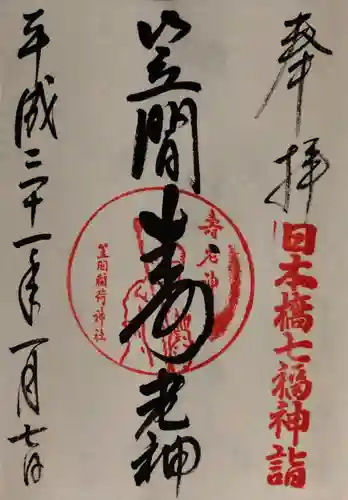 奉拝
日本橋七福神詣
笠間
寿老神
寿老神
笠間稲荷神社
平成二十一年一月七日